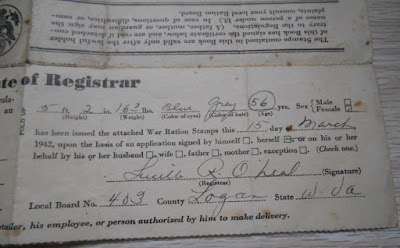 The Stamps contained in this Book are valid only after the lawful holder
of this Book has signed the certificate below, and are void if detached contrary
to the Regulations. (A father, mother, or guardian may sign the
name of a person under 18.) In case of questions, difficulties, or
plaints, consult your local Ration Board.
te of Registrar
FOLD
5 ft. 2 in. 163 lbs. Blue Grey 56 yrs. Sex { Male
(Height) (Weight) (Color of eyes) (Color of hair) (Age) Female
has been issued the attached War Ration Stamps this 15 day of March
1942, upon the basis of application signed by himself, herself, or on his or her
behalf by his or her husband, wife, father, mother, exception. (Check one.)
R. O'Neal (Signature)
(Registrar)
Local Board No. 409 County Logan State W. Va
etailer, his employee, or person authorized by him to make delivery.